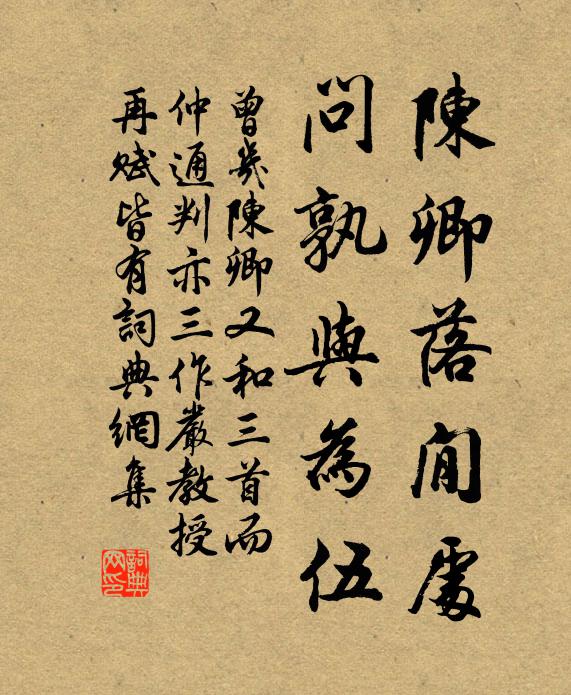 陳卿落閒處
問孰與為伍
曾幾陳卿又和三首而
仲通判亦三作嚴教授
再賦皆有詞典網集
詞典網印